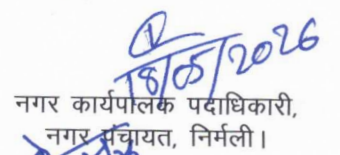 18/05/2026
नगर कार्यपालक पदाधिकारी,
नगर पंचायत, निर्मली।